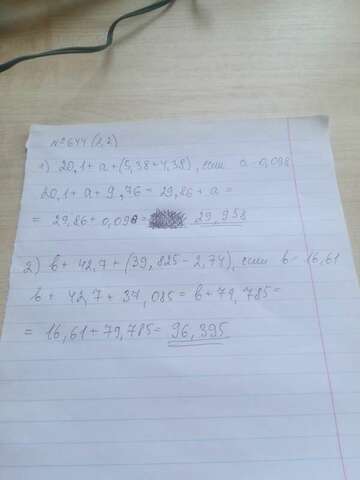 №644 (1,2)
1) 20,1 + a + (5,38 + 4,38), если a - 0,098
20,1 + a + 9,76 = 29,86 + a =
= 29,86 + 0,098 = 29,958
2) b + 42,7 + (39,825 - 2,74), если b - 16,61
b + 42,7 + 37,085 = b + 79,785 =
= 16,61 + 79,785 = 96,395